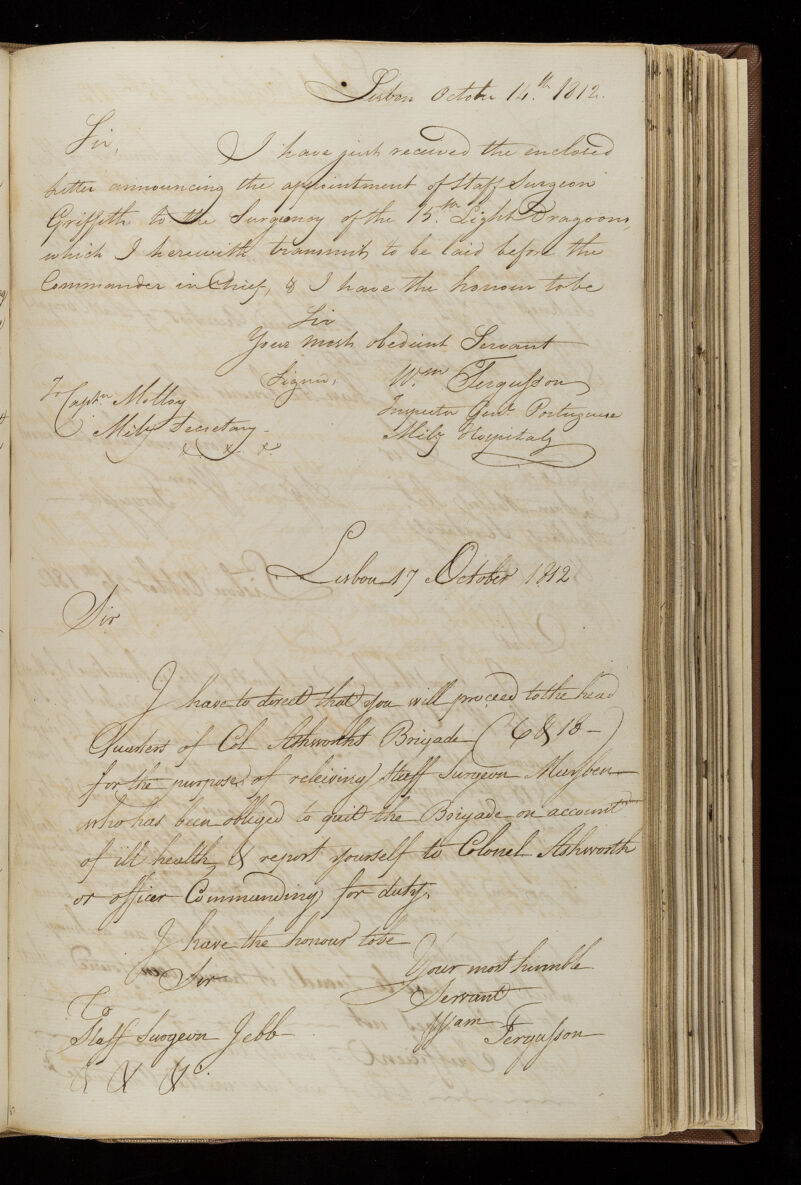 Lisbon October 14.th 1812.
Sir, I have just received the enclosed
letter announcing the appointment of Staff Surgeon
Griffeth to the Surgeoncy of the 15.th Light Dragoons,
which I herewith transmit, to be laid before the
Commander in Chief, & I have the honour to be
Sir
Your most obedient Servant
Signed, Wm Fergusson
To Captn Molloy Inspector Genl Portuguese
Mily Secretary Mily Hospitals
&. &. &.
Lisbon 17 October 1812
Sir
I have to direct that you will proceed to the head
Quarters of Col Ashworths Brigade (6 & 18 -)
for the purpose of releiving Staff Surgeon
who has been obliged to quit the Brigade on account
of ill health, & report yourself to Colonel Ashworth
or officer Commanding for duty.
I have the honour to be
Sir Your most humble
Servant
To
Staff Surgeon Jebb Wam Fergusson
& & &c.